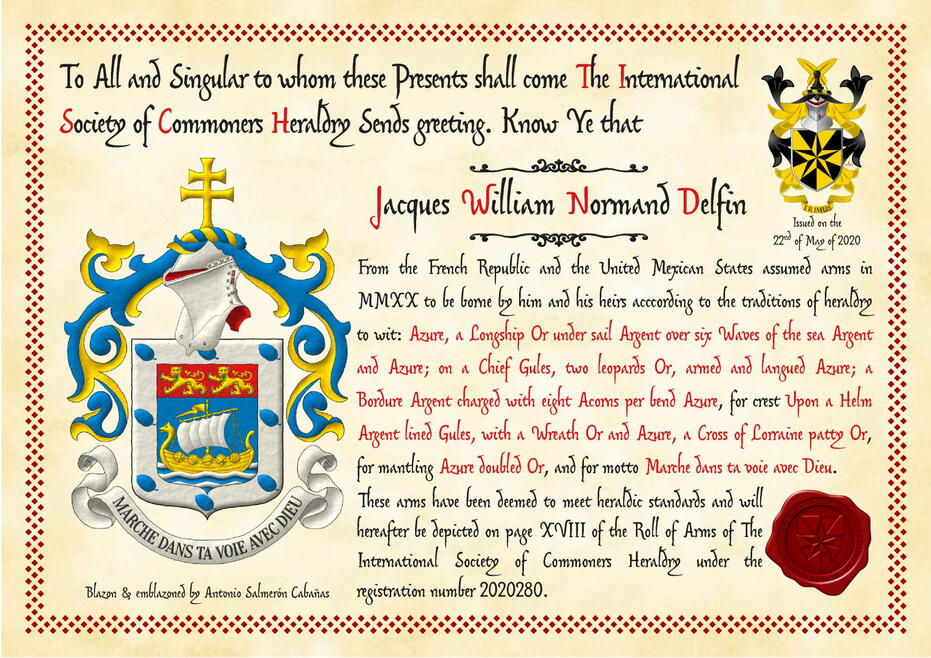 To All and Singular to whom these Presents shall come The International
Society of Commoners Heraldry Sends greeting. Know Ye that
Jacques William Normand Delfin
ERIMUS
Issued on the
22nd of May of 2020
From the French Republic and the United Mexican States assumed arms in
MMXX to be borne by him and his heirs acccording to the traditions of heraldry
to wit: Azure, a Longship Or under sail Argent over six Waves of the sea Argent
and Azure; on a Chief Gules, two leopards Or, armed and langued Azure; a
Bordure Argent charged with eight Acorns per bend Azure, for crest Upon a Helm
Argent lined Gules, with a Wreath Or and Azure, a Cross of Lorraine patty Or,
for mantling Azure doubled Or, and for motto Marche dans ta voie avec Dieu.
These arms have been deemed to meet heraldic standards and will
hereafter be depicted on page XVIII of the Roll of Arms of The
International Society of Commoners Heraldry under the
registration number 2020280.
MARCHE DANS TA VOIE AVEC DIEU
Blazon & emblazoned by Antonio Salmerón Cabañas